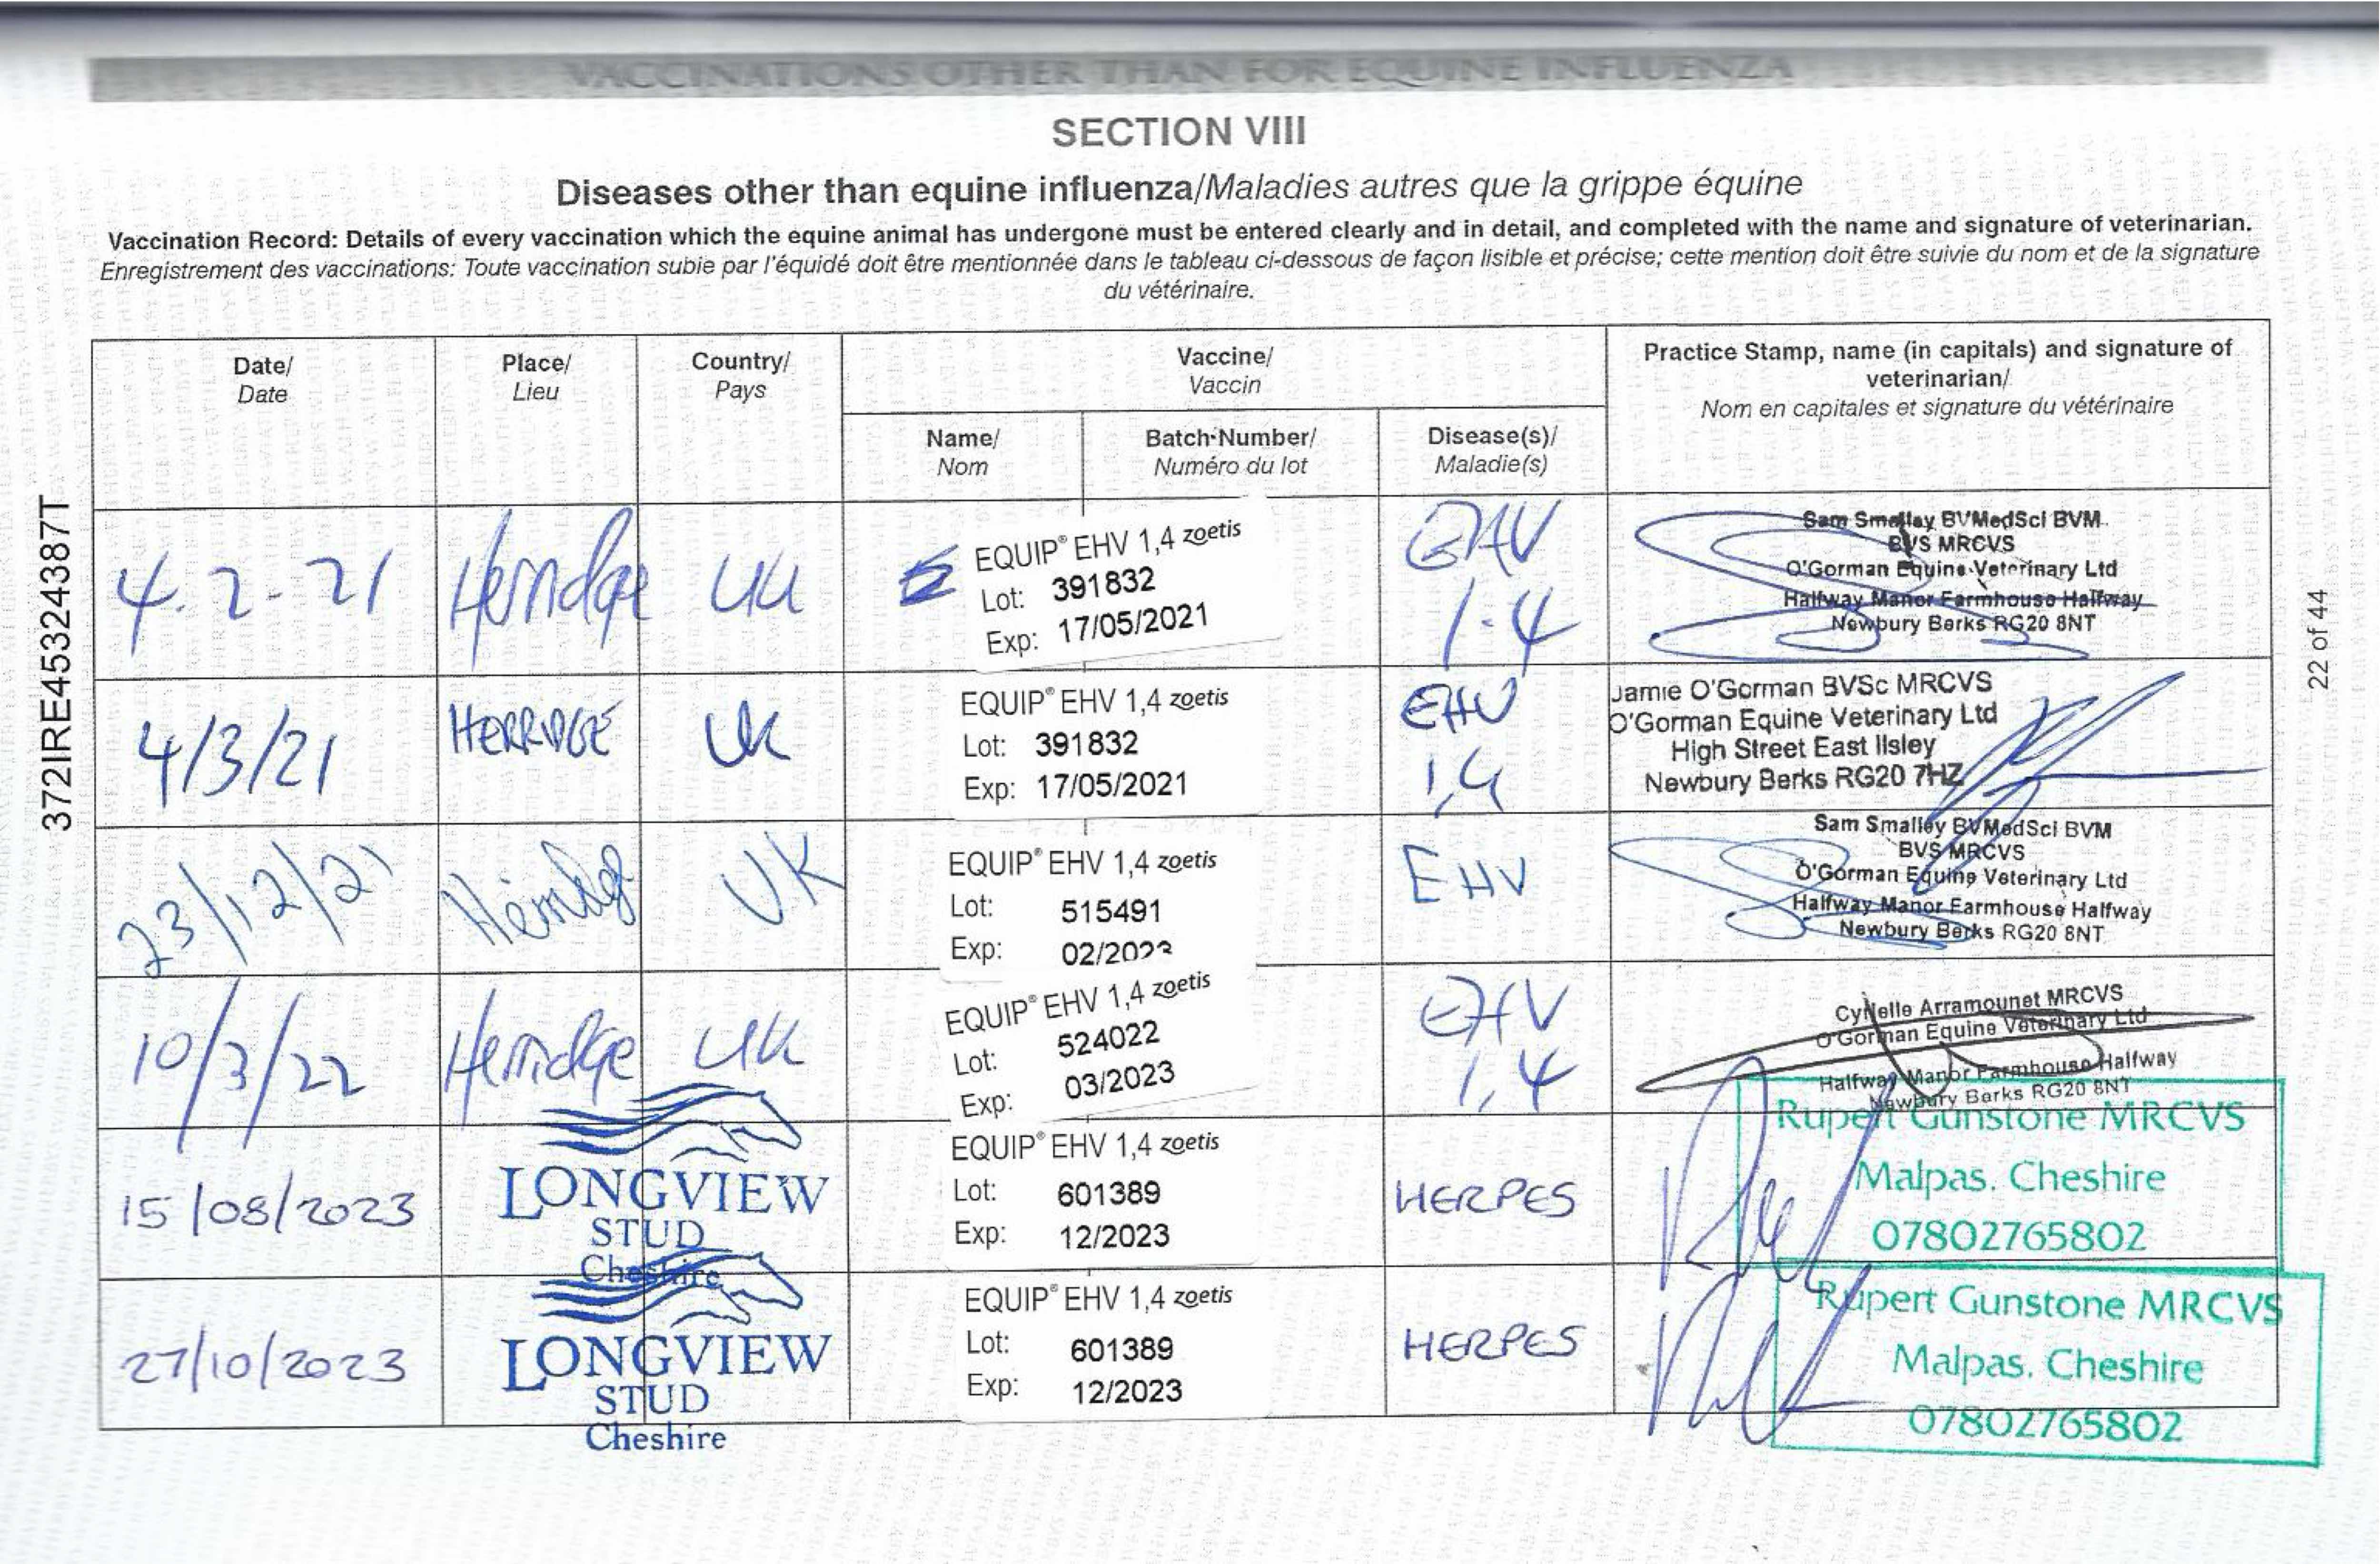 VACCINATIONS OTHER THAN FOR EQUINE INFLUENZA
SECTION VIII
Diseases other than equine influenza/Maladies autres que la grippe équine
Vaccination Record: Details of every vaccination which the equine animal has undergone must be entered clearly and in detail, and completed with the name and signature of veterinarian.
Enregistrement des vaccinations: Toute vaccination subie par l'équidé doit être mentionnée dans le tableau ci-dessous de façon lisible et précise; cette mention doit être suivie du nom et de la signature
du vétérinaire.
Date/
Date
Place/
Lieu
Country/
Pays
Vaccine/
Vaccin
Name/
Nom
Batch Number/
Numéro du lot
Disease(s)/
Maladie(s)
Practice Stamp, name (in capitals) and signature of
veterinarian/
Nom en capitales et signature du vétérinaire
4.2.21
Herridge
UK
EQUIP® EHV 1,4 zoetis
Lot: 391832
Exp: 17/05/2021
EHV
1.4
Sam Smalley BVMedSci BVM
BVS MRCVS
O'Gorman Equine Veterinary Ltd
Halfway Manor Farmhouse Halfway
Newbury Berks RG20 8NT
4/3/21
HERRIDGE
UK
EQUIP® EHV 1,4 zoetis
Lot: 391832
Exp: 17/05/2021
EHV
1,4
Jamie O'Gorman BVSc MRCVS
O'Gorman Equine Veterinary Ltd
High Street East Ilsley
Newbury Berks RG20 7HZ
23/12/21
Herridge
UK
EQUIP® EHV 1,4 zoetis
Lot: 515491
Exp: 02/2023
EHV
Sam Smalley BVMedSci BVM
BVS MRCVS
O'Gorman Equine Veterinary Ltd
Halfway Manor Farmhouse Halfway
Newbury Berks RG20 8NT
10/3/22
Herridge
UK
EQUIP® EHV 1,4 zoetis
Lot: 524022
Exp: 03/2023
EHV
1,4
Cyrielle Arramounet MRCVS
O'Gorman Equine Veterinary Ltd
Halfway Manor Farmhouse Halfway
Newbury Berks RG20 8NT
15/08/2023
LONGVIEW
STUD
Cheshire
EQUIP® EHV 1,4 zoetis
Lot: 601389
Exp: 12/2023
HERPES
Rupert Gunstone MRCVS
Malpas. Cheshire
07802765802
27/10/2023
LONGVIEW
STUD
Cheshire
EQUIP® EHV 1,4 zoetis
Lot: 601389
Exp: 12/2023
HERPES
Rupert Gunstone MRCVS
Malpas. Cheshire
07802765802
372IRE45324387T
22 of 44